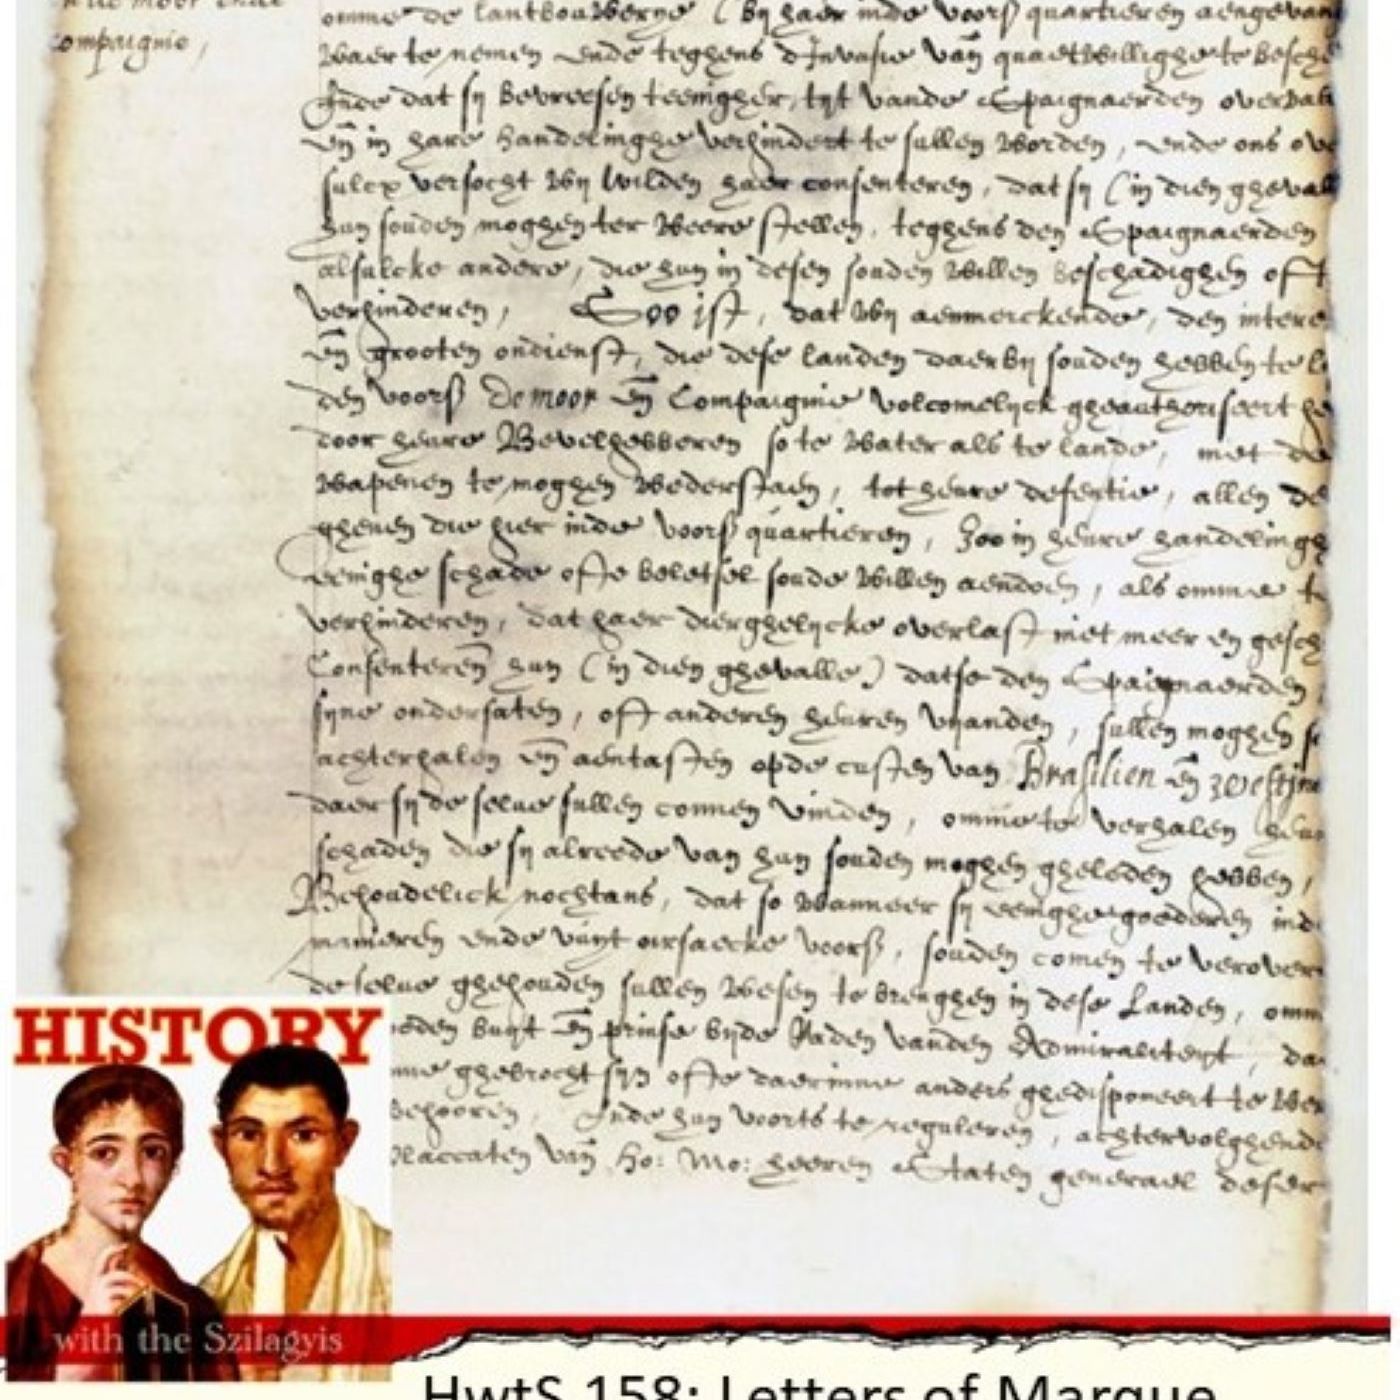 compaignie,
omme de lantbouwerye (by haer inde voors quartieren aengevan
waer te nemen ende teghens d'Invasie van quaetwillighe te besche
Ende dat sy bevreesen teenigher tyt vande Spaignaerden overval
en in hare handelinghe verhindert te sullen worden, ende ons ove
sulcx versocht wy wilden haer consenteren, dat sy (in dien gheval
hun souden moghen ter weere stellen, teghens den Spaignaerden
alsulcke andere, die hun in desen souden willen beschadighen oft
verhinderen, Soo ist, dat wy aenmerckende, den intere
en grooten ondienst, die dese landen daerby souden hebben te l
den voors de moor en Compaignie volcomelyck gheauthoriseert he
door heure Bevelhebberen so te water als te lande, met de
wapenen te moghen wederstaen, tot heure defentie, allen de
ghenen die hier inde voors quartieren, Zoo in heure handelingh
eenighe schade ofte beletsel soude willen aendoen, als omme t
verhinderen, dat haer dierghelycke overlast niet meer en gesch
Consenteren hun (in dien ghevalle) datse den Spaignaerden
syne ondersaten, oft anderen heuren vyanden, sullen moghen s
achterhalen en aentasten opde custen van Brasilien en westin
daer sy de selve sullen connen vinden, omme te verhalen heur
schaden die sy alreede van hun souden moghen gheleden hebben,
Behoudelick nochtans, dat so wanneer sy eenighe goederen ind
manieren ende vuyt oirsaecke voors, souden comen te verover
de selve ghehouden sullen wesen te brenghen in dese Landen, omm
buyt en prinse byde Raden vanden Admiraliteyt, da
ghebrocht syn ofte daerinne anders ghedisponeert te wer
behooren, Ende hun voorts te reguleren, achtervolghende
Placcaten van Ho: Mo: heeren Staten generael deser
HISTORY
with the Szilagyis
HwtS 158: Letters of Marque